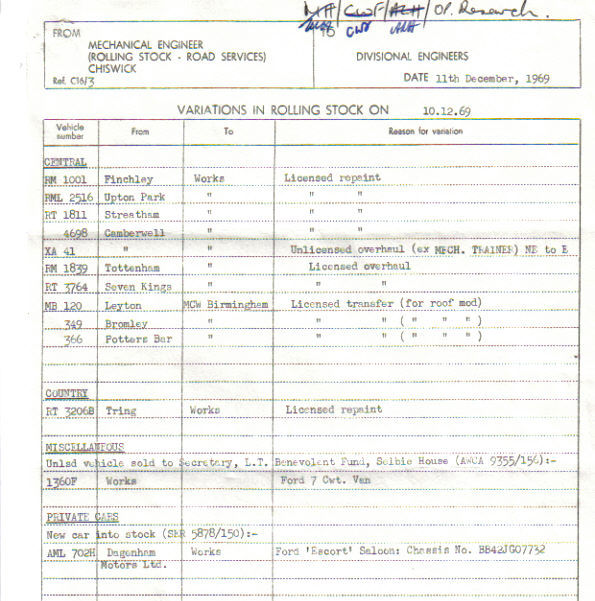 MA/CWF/ALH/OP. Research.
CWF ALH
FROM
MECHANICAL ENGINEER
(ROLLING STOCK - ROAD SERVICES)
CHISWICK
Ref. C16/3
TO
DIVISIONAL ENGINEERS
DATE 11th December, 1969
VARIATIONS IN ROLLING STOCK ON 10.12.69
Vehicle number From To Reason for variation
CENTRAL
RM 1001 Finchley Works Licensed repaint
RML 2516 Upton Park " " "
RT 1811 Streatham " " "
4698 Camberwell " " "
XA 41 " " Unlicensed overhaul (ex MECH. TRAINER) NE to E
RM 1839 Tottenham " Licensed overhaul
RT 3764 Seven Kings " " "
MB 120 Leyton MCW Birmingham Licensed transfer (for roof mod)
349 Bromley " " " ( " " " )
366 Potters Bar " " " ( " " " )
COUNTRY
RT 3206B Tring Works Licensed repaint
MISCELLANEOUS
Unlsd vehicle sold to Secretary, L.T. Benevolent Fund, Selbie House (AWCA 9355/156):-
1360F Works Ford 7 Cwt. Van
PRIVATE CARS
New car into stock (SER 5878/150):-
AML 702H Dagenham Works Ford 'Escort' Saloon: Chassis No. BB42JG07732
Motors Ltd.